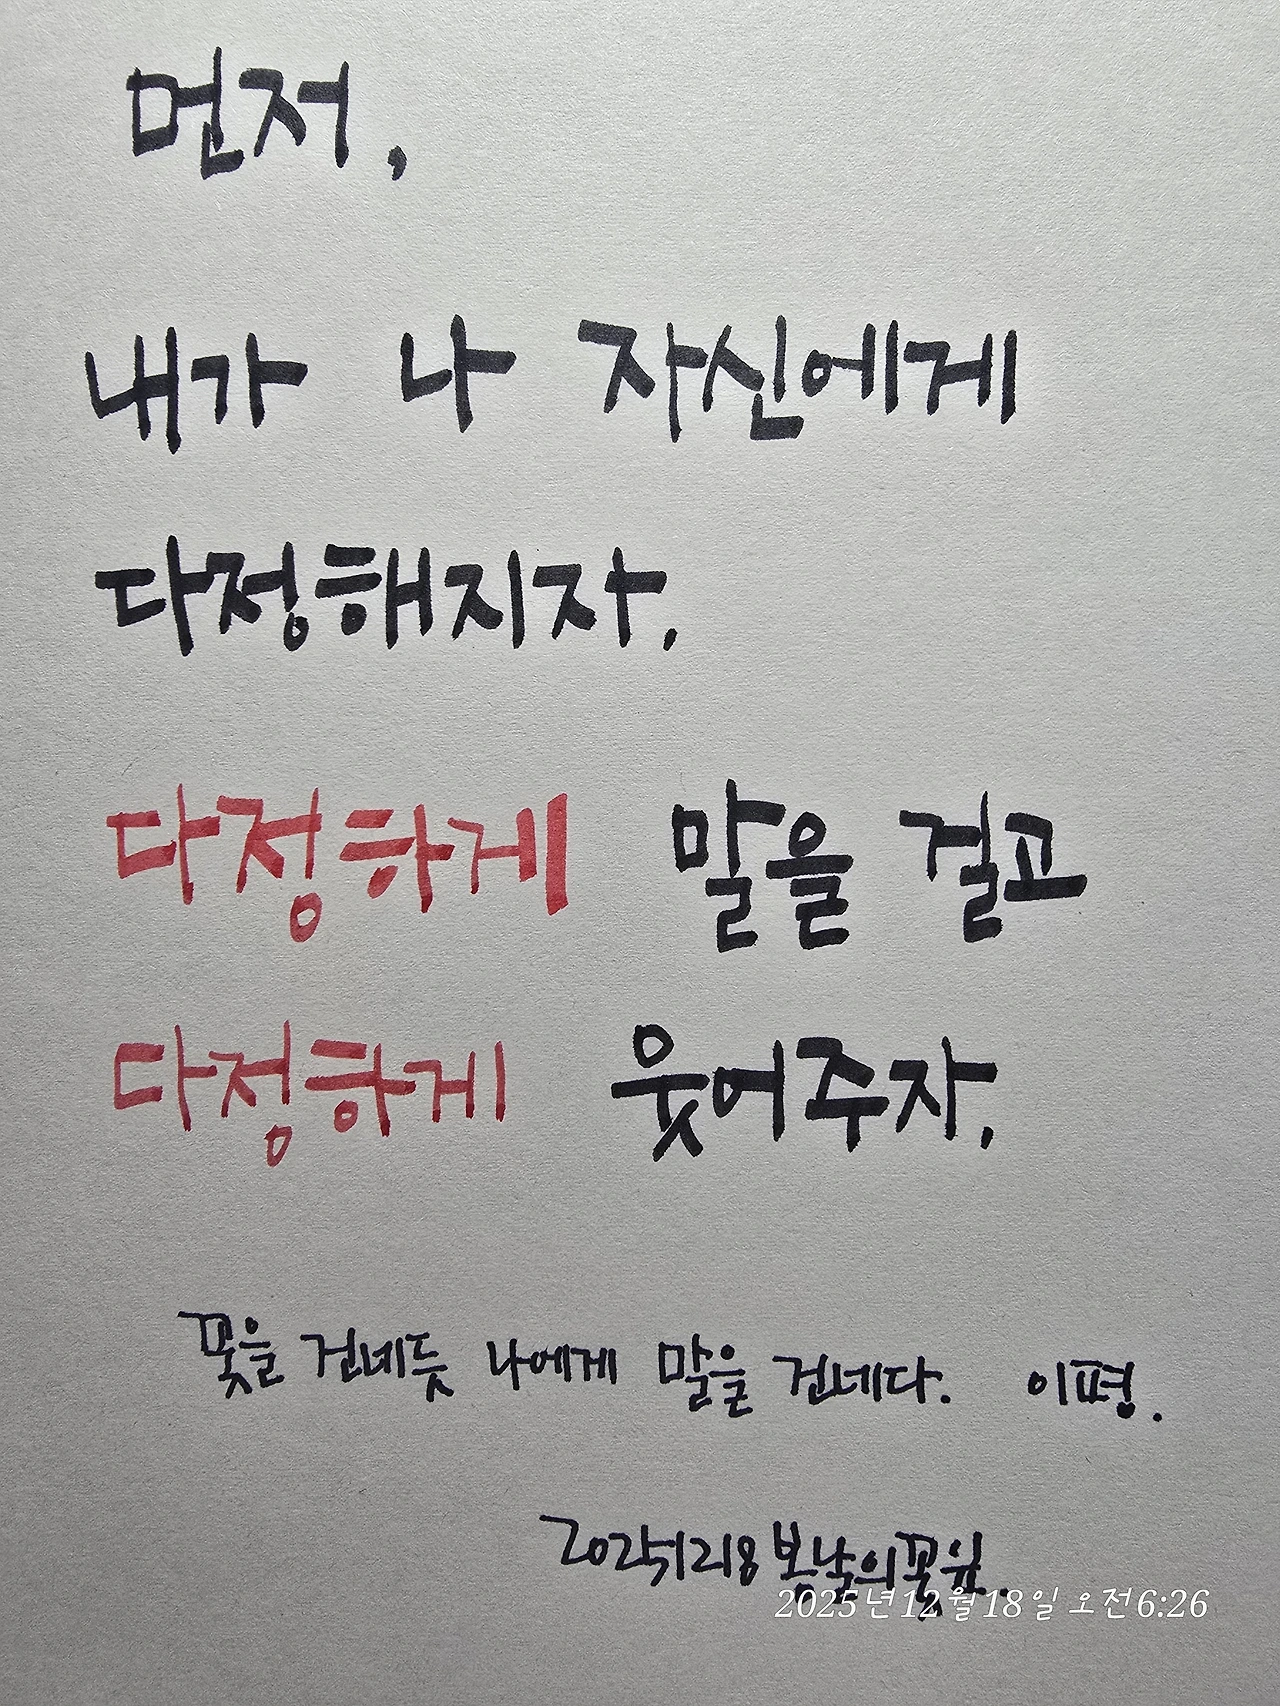 먼저,
내가 나 자신에게
다정해지자.
다정하게 말을 걸고
다정하게 웃어주자.
꽃을 건네듯 나에게 말을 건네다. 이평.
20251218 봄날의꽃잎.
2025년 12월 18일 오전 6:26